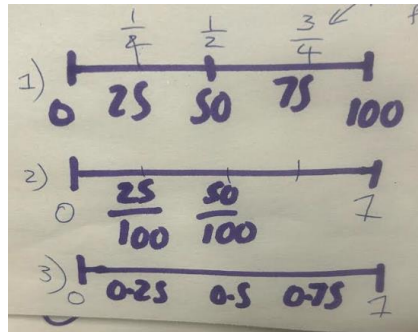 1/4 1/2 3/4
1)
0 25 50 75 100
2)
0 25/100 50/100 1
3)
0 0.25 0.5 0.75 1